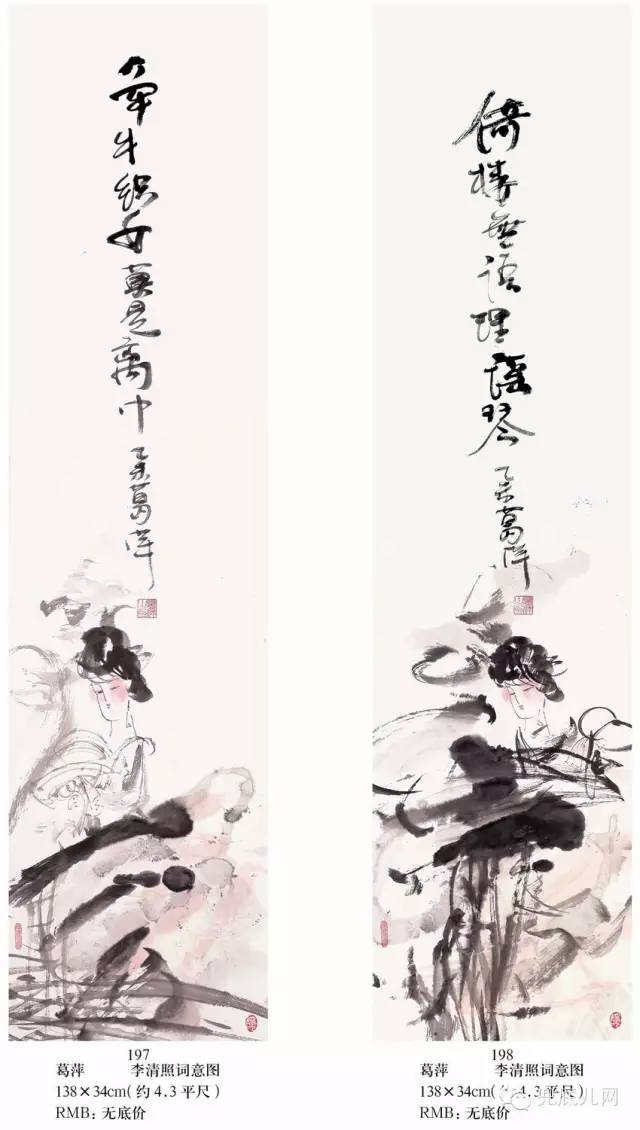 牵牛织女莫是离中
乙未葛萍
倚楼無语理瑶琴
乙未葛萍
197
葛萍 李清照词意图
138×34cm(约4.3平尺)
RMB：无底价
198
葛萍 李清照词意图
138×34cm(约4.3平尺)
RMB：无底价
兜底儿网